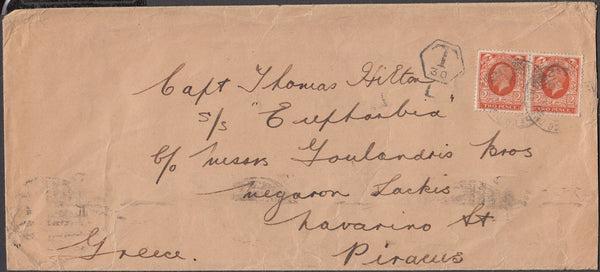 Capt Thomas Hilton
S/S "Euphorbia"
c/o Messrs Goulandris Bros
Megaron Lackis
Navarino St
Piraeus
Greece.
T
30
TWO PENCE
TWO PENCE